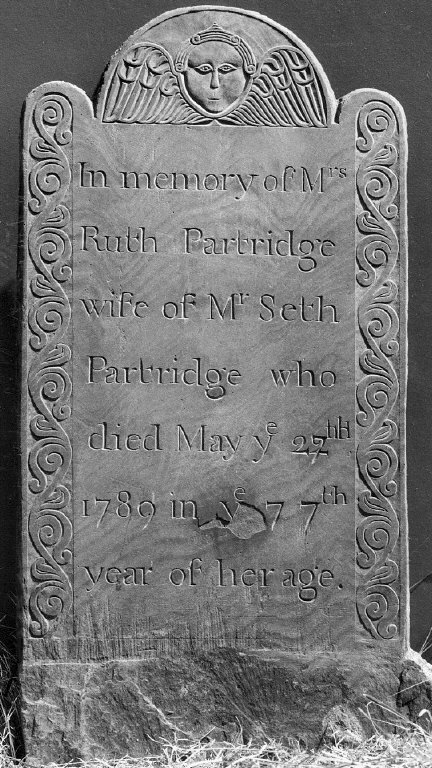 In memory of Mrs
Ruth Partridge
wife of Mr Seth
Partridge who
died May ye 27th
1789 in ye 77th
year of her age.